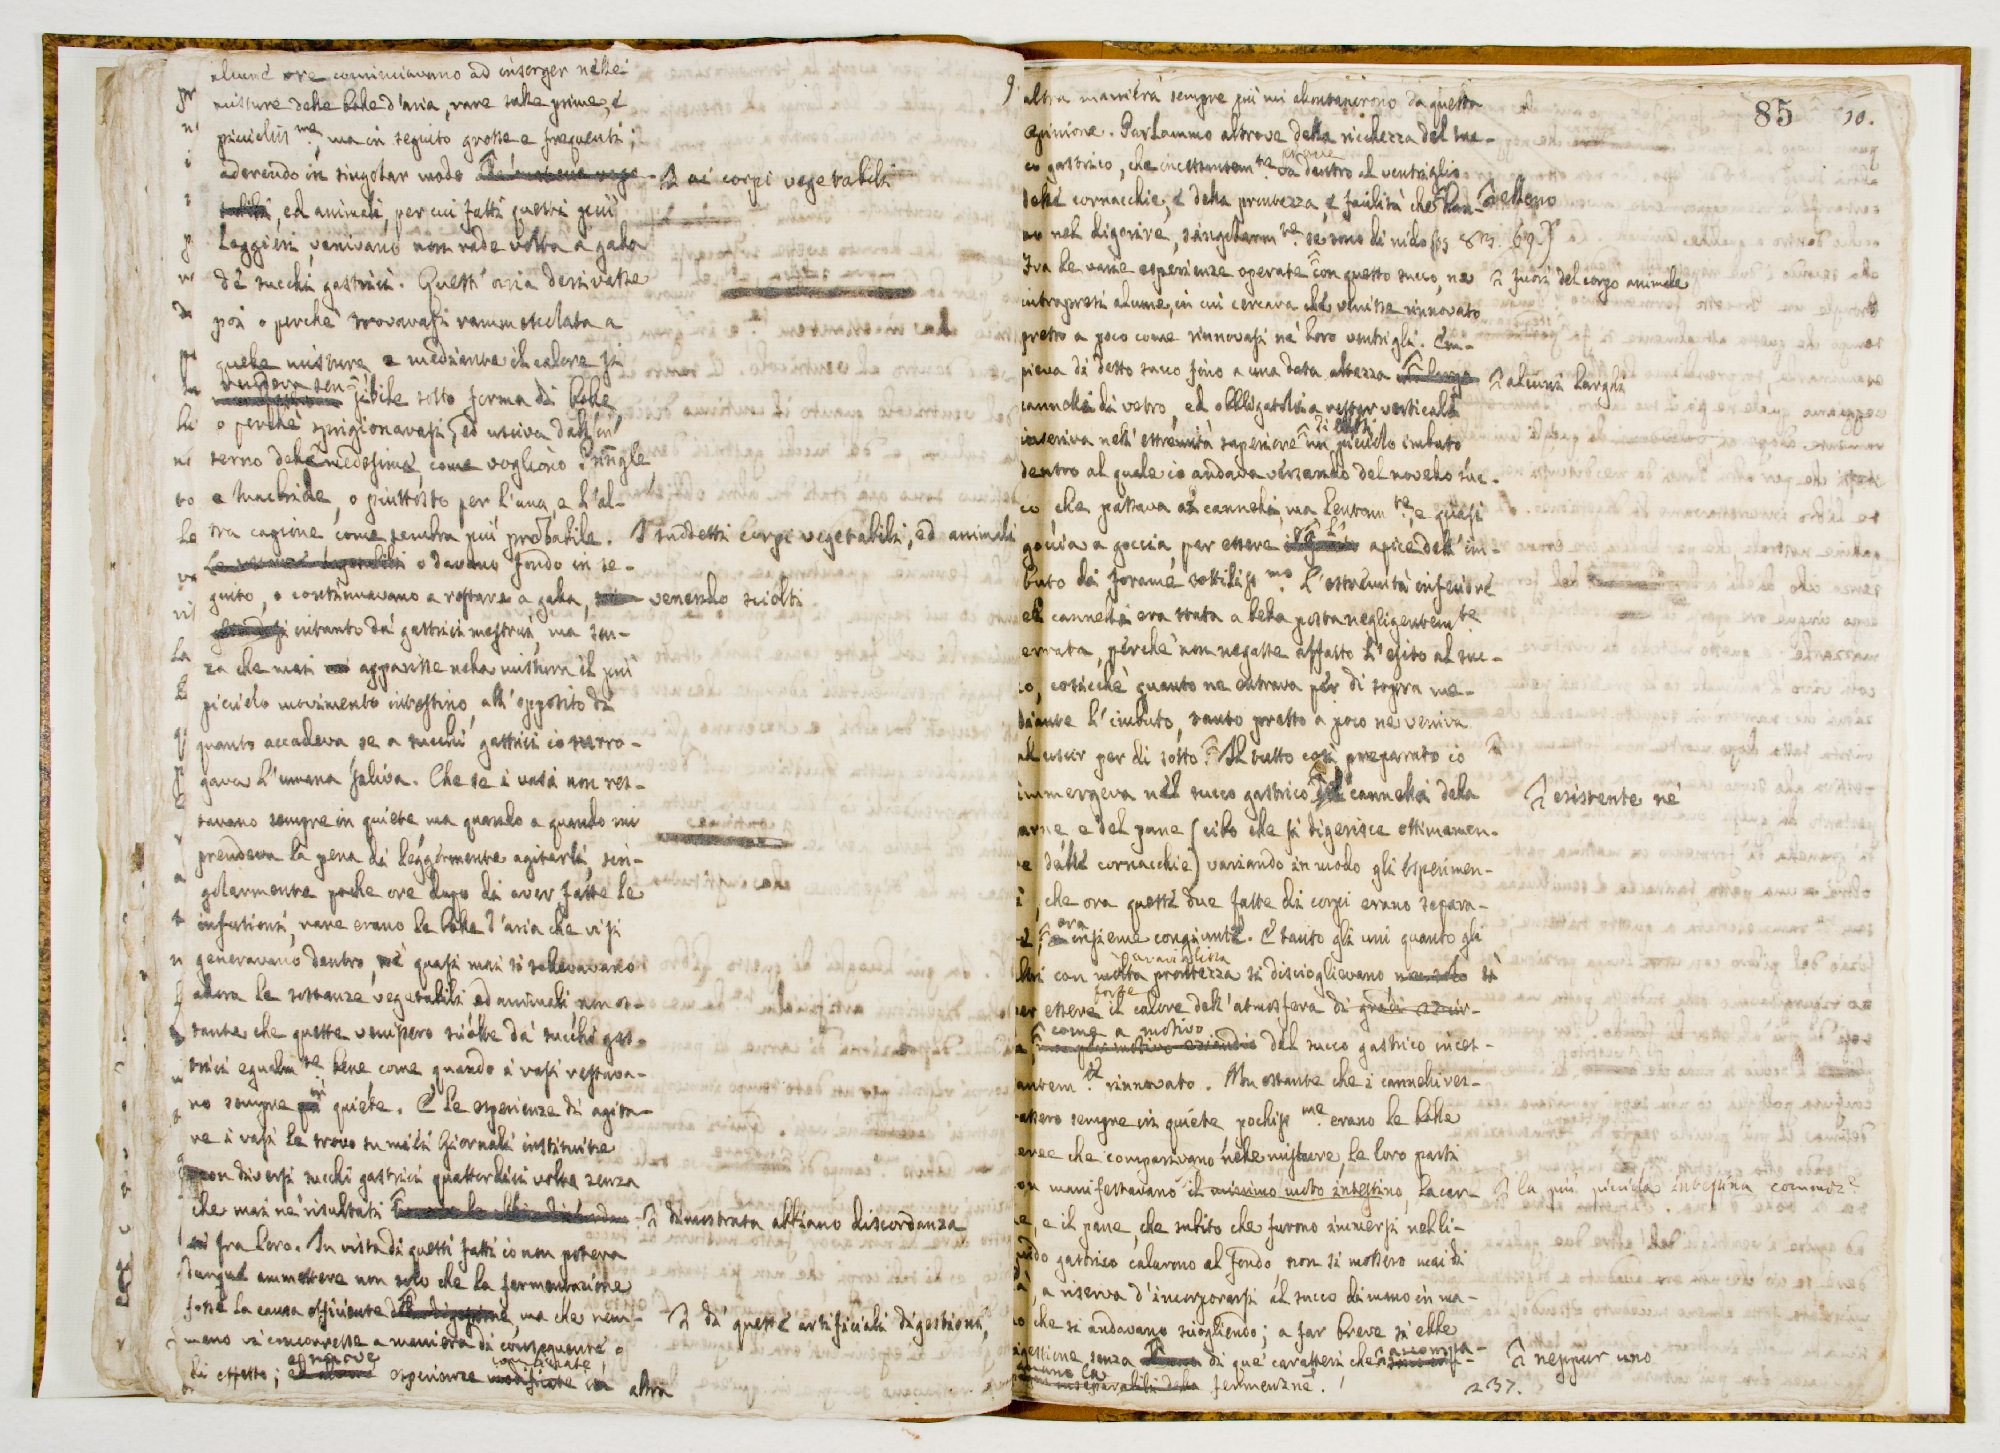 alcune ore cominciavano ad insorger nelle
misture delle bolle d'aria, rare sulle prime, e
picciolis.me, ma in seguito grosse e frequenti;
aderendo in singolar modo ai corpi vegetabili
, ed animali, per cui fatti questi più
leggieri, venivano non rade volte a galla
de' succhi gastrici. Quest' aria derivasse
poi o perchè trovavasi rammescolata a
quelle misture, e mediante il calore si
rendeva sensibile sotto forma di bolle,
o perchè sprigionavasi, ed usciva dall'in
terno delle medesime, come vogliono Pringle
e Macbride, o piuttosto per l'una, e l'al-
tra cagione come sembra più probabile. I suddetti corpi vegetabili, ed animali
o davano fondo in se-
guito, o continuavano a restare a galla, venendo sciolti
intanto da' gastrici mestrui, ma sen-
za che mai apparisse nella mistura il più
picciolo movimento intestino, all'opposito di
quanto accadeva se a succhi gastrici io surro-
gava l'umana saliva. Che se i vasi non res-
tavano sempre in quiete, ma quando a quando mi
prendeva la pena di leggermente agitarli, sin-
golarmente poche ore dopo di aver fatte le
infusioni, rare erano le bolle d'aria che vi si
generavano dentro, nè quasi mai si sollevavano
allora le sostanze vegetabili ed animali, non os-
tante che queste venissero sciolte da' succhi gas-
trici egualm.te bene come quando i vasi restava-
no sempre in quiete. E le esperienze di agita-
re i vasi le trovo su miei Giornali instituite
con diversi succhi gastrici quattordici volte senza
che mai ne' risultati dimostrata abbiano discordanza
fra loro. In vista di questi fatti io non poteva
dunque ammettere non solo che la fermentazione
fosse la causa efficiente di queste artificiali digestioni,
ma che nem-
meno vi concorresse a maniera di conseguente o
di effetto; e nuove esperienze combinate in altra
9
85
10.
altra maniera sempre più mi allontanarono da questa
opinione. Parlammo altrove della ricchezza del suc-
co gastrico, che incessantem.te va dentro al ventriglio
delle cornacchie, e della prontezza, e facilità che
no nel digerire, singolarm.te se sono di nido
Fra le varie esperienze operate con questo succo, ne fuori del corpo animale
intrapresi alcune, in cui cercava che venisse rinnovato
presso a poco come rinnovasi ne' loro ventrigli. Em-
pieva di detto succo fino a una data altezza alcuni larghi
cannelli di vetro, ed obbligatili a restar verticali
inseriva nell'estremità superiore di essi un picciolo imbuto
dentro al quale io andava versando del novello suc-
co che passava ai cannelli, ma lentam.te, e quasi
goccia a goccia, per essere l'apice dell'im-
buto di forame sottilis.mo. L'estremità inferiore
ei cannelli era stata a bella posta negligentem.te
errata, perchè non negasse affatto l'esito al suc-
co, cosicchè quanto ne entrava per di sopra me-
diante l'imbuto, tanto presso a poco ne veniva
ad uscir per di sotto. Il tutto così preparato io
immergeva nel succo gastrico esistente ne' cannelli della
arne e del pane (cibo che si digerisce ottimamen-
e dalle cornacchie) variando in modo gli esperimen-
, che ora queste due fatte di corpi erano separa-
, ora insieme congiunte. E tanto gli uni quanto gli
ltri con maravigliosa prontezza si discioglievano sì
er essere forte il calore dell'atmosfera
come a motivo del succo gastrico inces-
antem.te rinnovato. Non ostante che i cannelli res-
assero sempre in quiete pochis.me erano le bolle
eree che comparivano nelle misture, le loro parti
on manifestavano la più picciola intestina commoz.e
La car-
e, e il pane, che subito che furono immersi nelli-
uido gastrico calarono al fondo non si mossero mai di
, a riserva d'incorporarsi al succo di mano in ma-
o che si andavano sciogliendo; a far breve si ebbe
igestione senza neppur uno di que' caratteri che accompa-
gnano la fermenzne.
237.